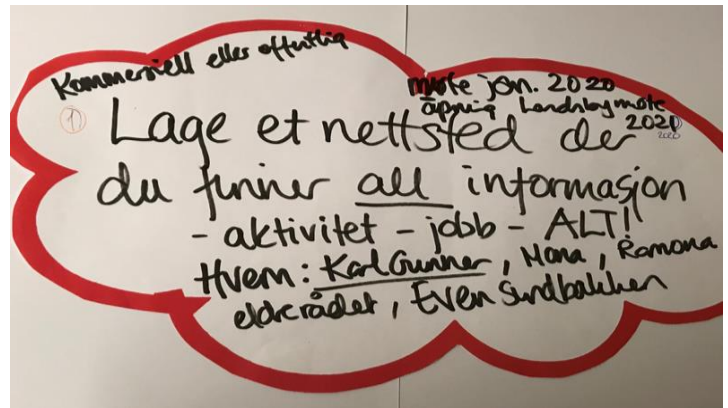 Kommersiell eller offentlig
møte jan. 2020
åpning Landsbymøte
2020
① Lage et nettsted der
du finner all informasjon
- aktivitet - jobb - ALT!
Hvem: Karl Gunnar, Mona, Ramona
eldrerådet, Even Sundbakken